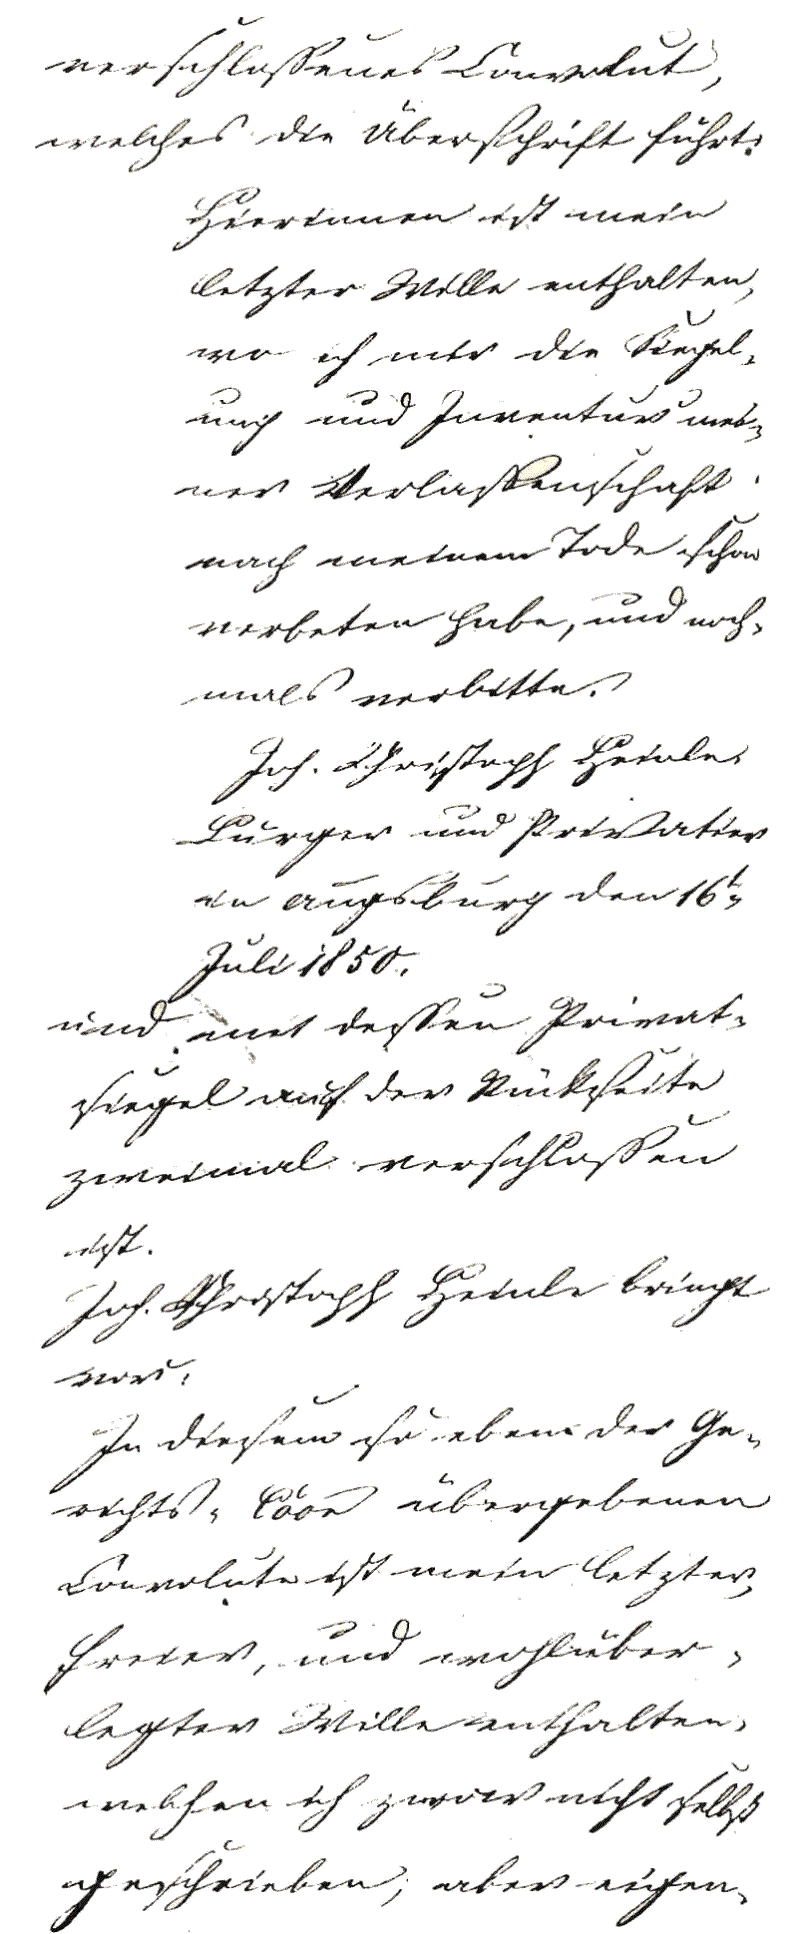 verschlossenes Convolut,
welches die Überschrift führt:
Hierinnen ist mein
letzter Wille enthalten,
wo ich mir die Siegel-
ung und Inventur mei-
ner Verlassenschaft
nach meinem Tode schon
verbeten habe, und noch-
mals verbitte.
Joh. Christoph Heinle
Burger und Privatier
in Augsburg den 16t
Juli 1850.
und mit dessen Privat-
siegel auf der Rückseite
zweimal verschlossen
ist.
Joh. Christoph Heinle bringt
vor:
In diesem so eben der Ge-
richts- Cöon übergebenen
Convolute ist mein letzter,
freier, und wohlüber-
legter Wille enthalten,
welchen ich zwar nicht selbst
geschrieben, aber eigen-